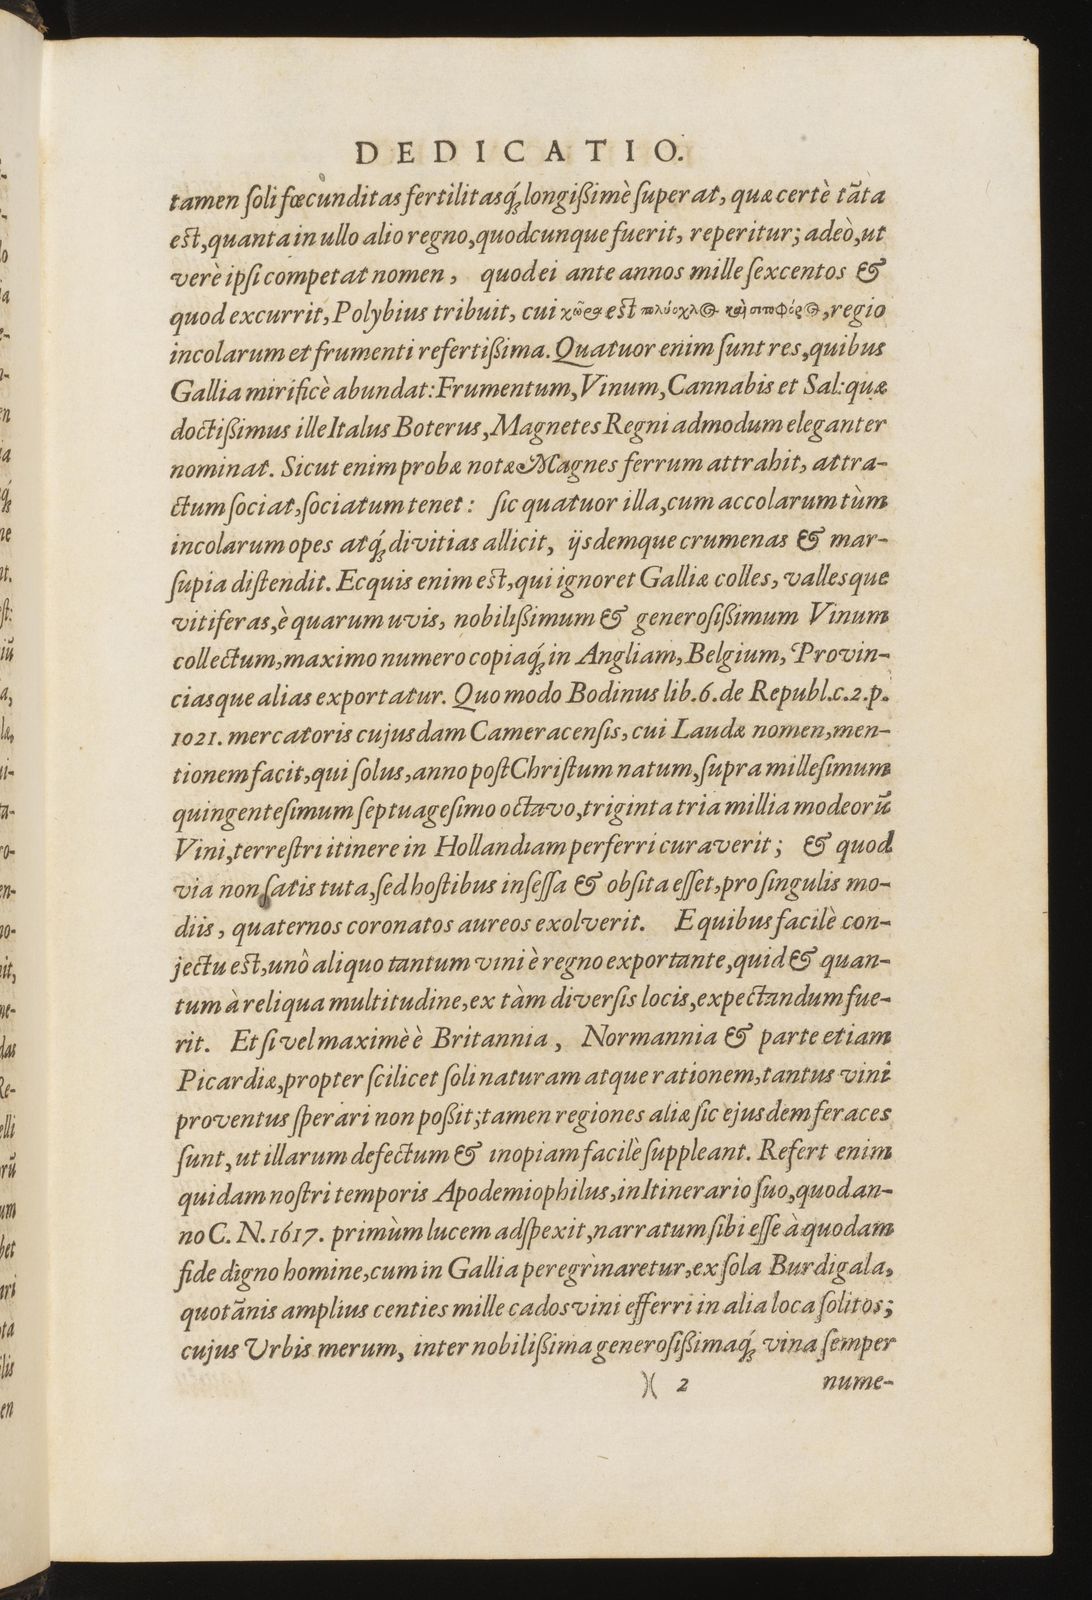 DEDICATIO.
tamen ſoli fœcunditas fertilitasq́; longißimè ſuperat, quæ certè tāta
est, quanta in ullo alio regno, quodcunque fuerit, reperitur; adeò, ut
verè ipſi competat nomen, quod ei ante annos mille ſexcentos &
quod excurrit, Polybius tribuit, cui χῶρα est πολύοχλ⊙ καὶ σιτοφόρ⊙, regio
incolarum et frumenti refertißima. Quatuor enim ſunt res, quibus
Gallia mirificè abundat: Frumentum, Vinum, Cannabis et Sal: quæ
doctißimus ille Italus Boterus, Magnetes Regni admodum eleganter
nominat. Sicut enim probæ notæ Magnes ferrum attrahit, attra-
ctum ſociat, ſociatum tenet: ſic quatuor illa, cum accolarum tùm
incolarum opes atq́; divitias allicit, ijsdemque crumenas & mar-
ſupia diſtendit. Ecquis enim est, qui ignoret Galliæ colles, vallesque
vitiferas, è quarum uvis, nobilißimum & generoſißimum Vinum
collectum, maximo numero copiaq́; in Angliam, Belgium, Provin-
ciasque alias exportatur. Quomodo Bodinus lib. 6. de Republ. c. 2. p.
1021. mercatoris cujusdam Cameracenſis, cui Laudæ nomen, men-
tionem facit, qui ſolus, anno poſt Chriſtum natum, ſupra milleſimum
quingenteſimum ſeptuageſimo octavo, triginta tria millia modeorū
Vini, terreſtri itinere in Hollandiam perferri curaverit; & quod
via non ſatis tuta, ſed hoſtibus inſeſſa & obſita eſſet, pro ſingulis mo-
diis, quaternos coronatos aureos exolverit. E quibus facilè con-
jectu est, unò aliquo tantum vini è regno exportante, quid & quan-
tum à reliqua multitudine, ex tàm diverſis locis, expectandum fue-
rit. Et ſi vel maximè è Britannia, Normannia & parte etiam
Picardiæ, propter ſcilicet ſoli naturam atque rationem, tantus vini
proventus ſperari non poßit; tamen regiones aliæ ſic ejusdem feraces
ſunt, ut illarum defectum & inopiam facilè ſuppleant. Refert enim
quidam noſtri temporis Apodemiophilus, in Itinerario ſuo, quod an-
no C. N. 1617. primùm lucem adſpexit, narratum ſibi eſſe à quodam
fide digno homine, cum in Gallia peregrinaretur, ex ſola Burdigala,
quotānis amplius centies mille cados vini efferri in alia loca ſolitos;
cujus Urbis merum, inter nobilißima generoſißimaq́; vina ſemper
)( 2 nume-